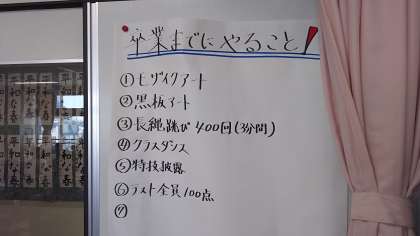 卒業までにやること!
①モザイクアート
②黒板アート
③長縄跳び400回(3分間)
④クラスダンス
⑤特技披露
⑥テスト全員100点
⑦